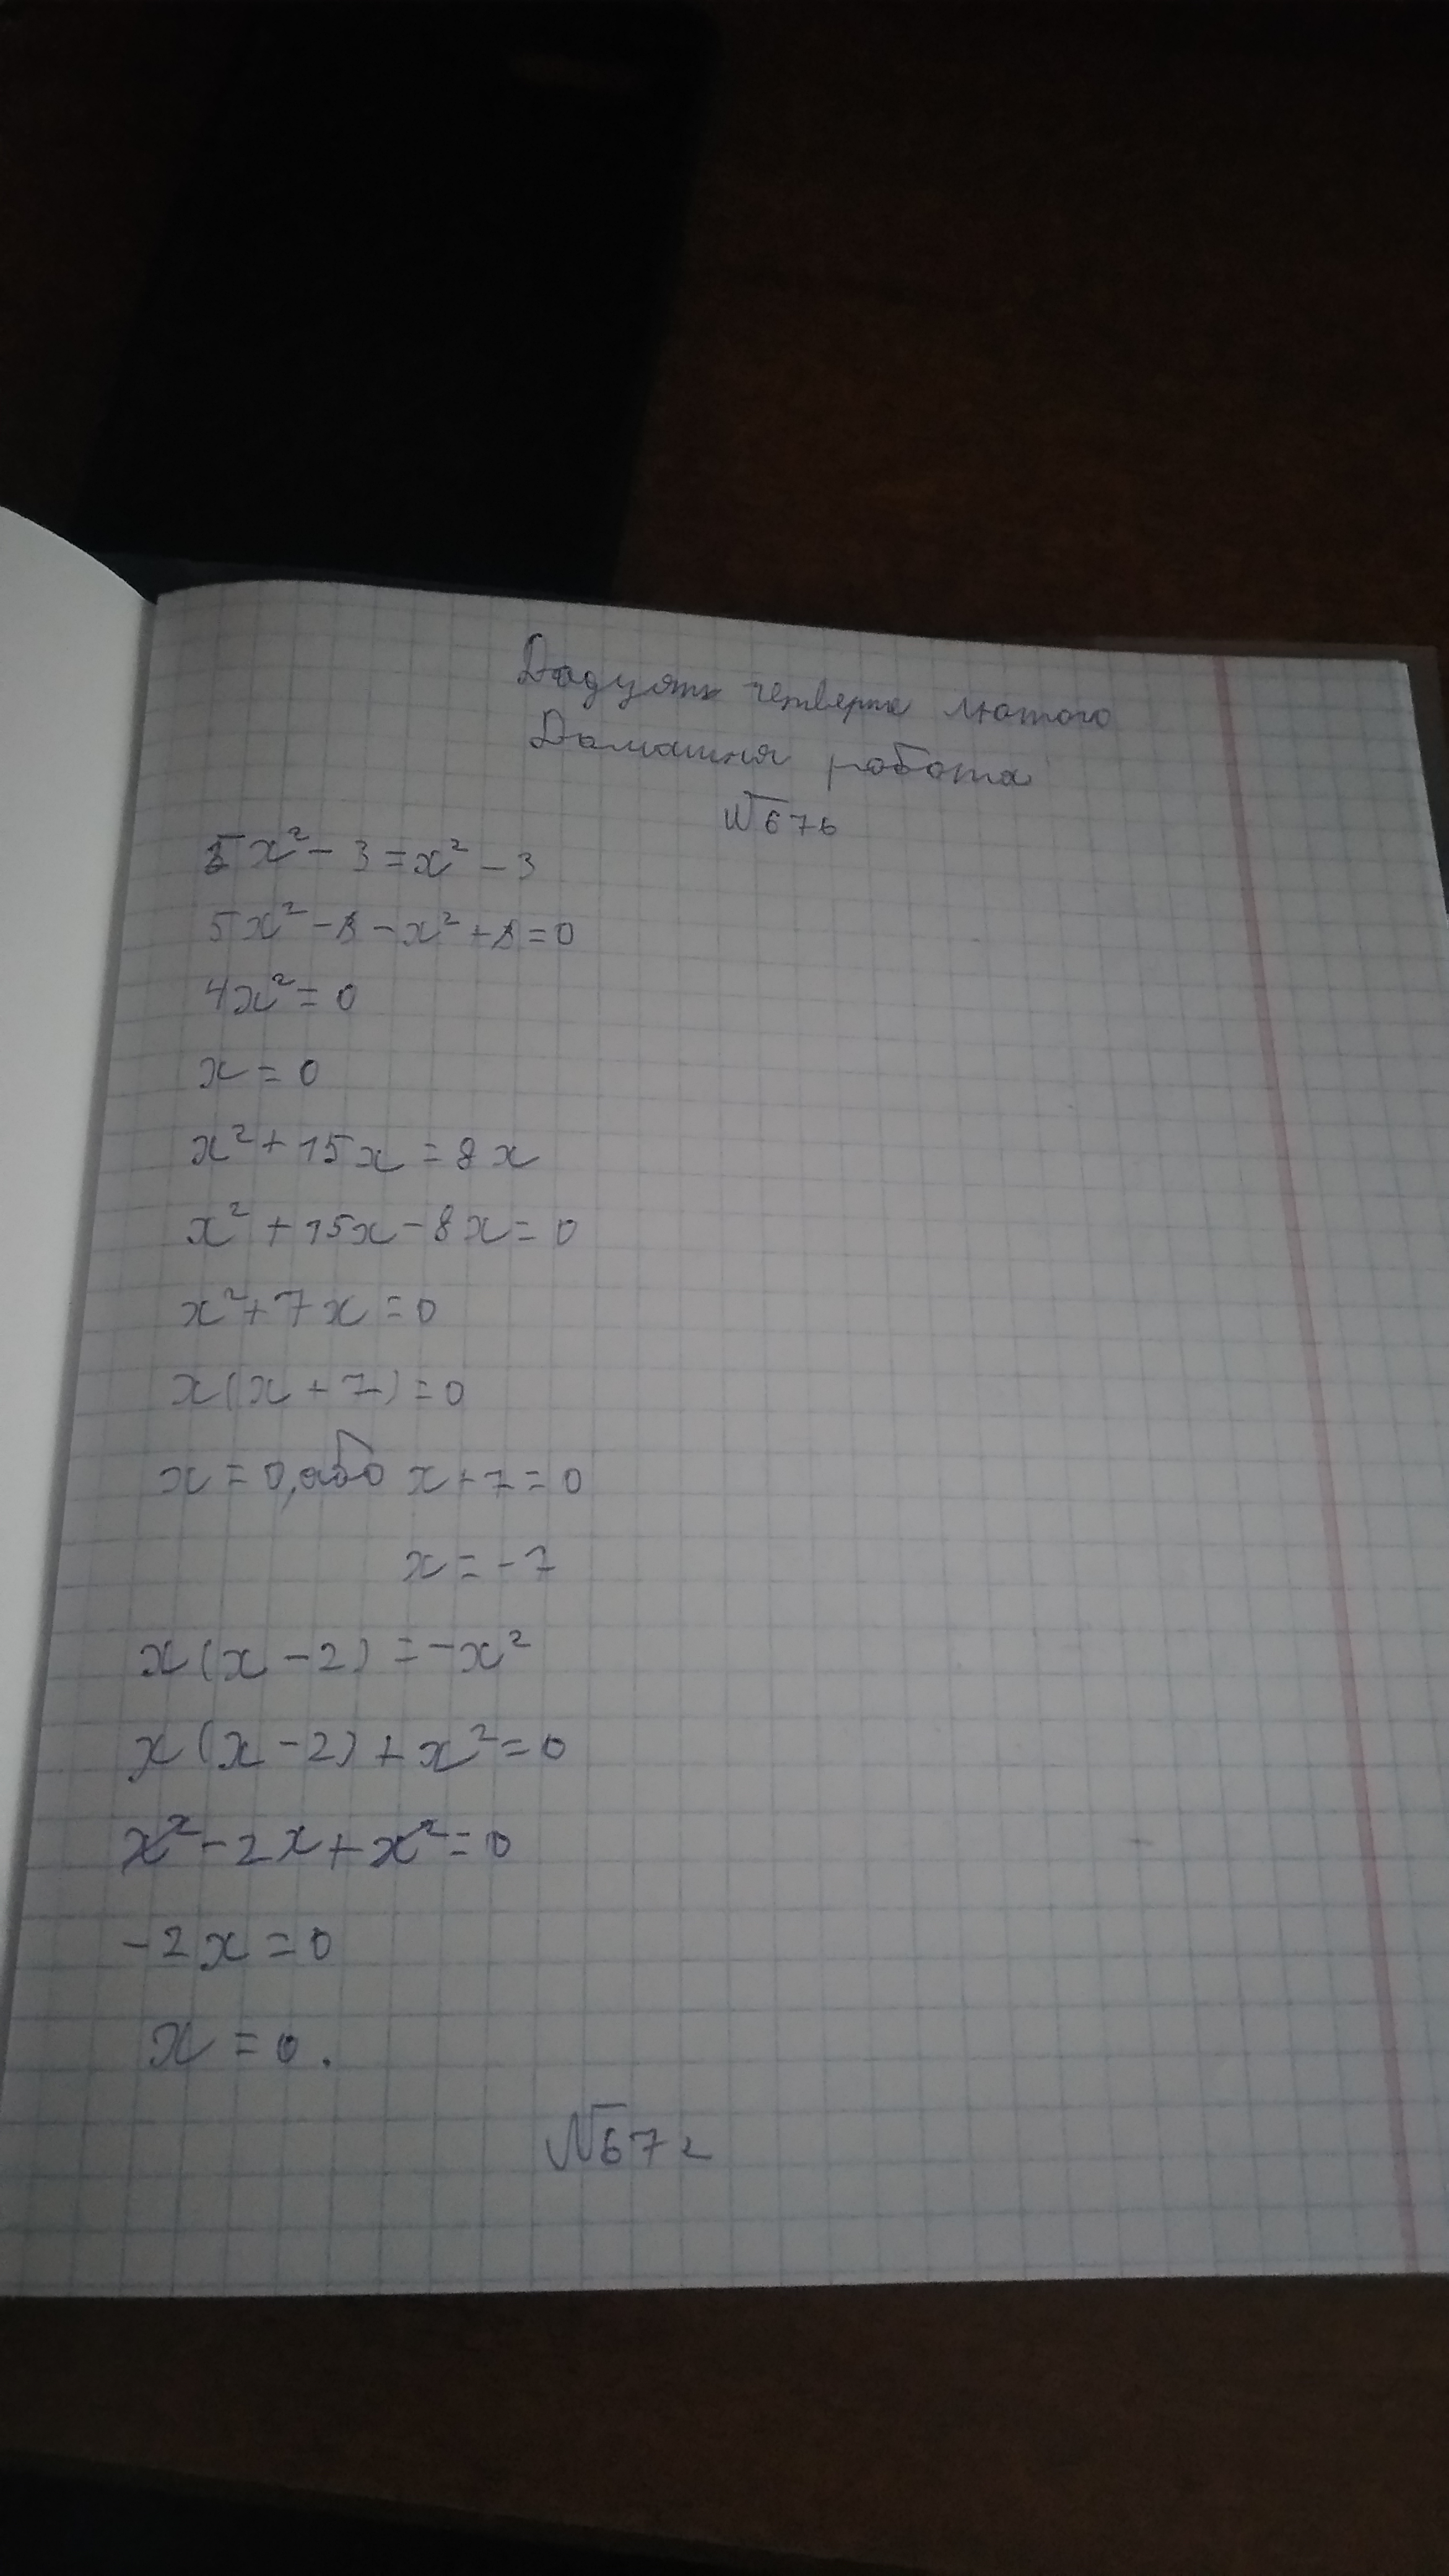 Двадцять четверте лютого
Домашня робота
№676
5x² - 3 = x² - 3
5x² - 3 - x² + 3 = 0
4x² = 0
x = 0
x² + 15x = 8x
x² + 15x - 8x = 0
x² + 7x = 0
x(x + 7) = 0
x = 0, або x + 7 = 0
x = -7
x(x - 2) = -x²
x(x - 2) + x² = 0
x² - 2x + x² = 0
-2x = 0
x = 0.
№672